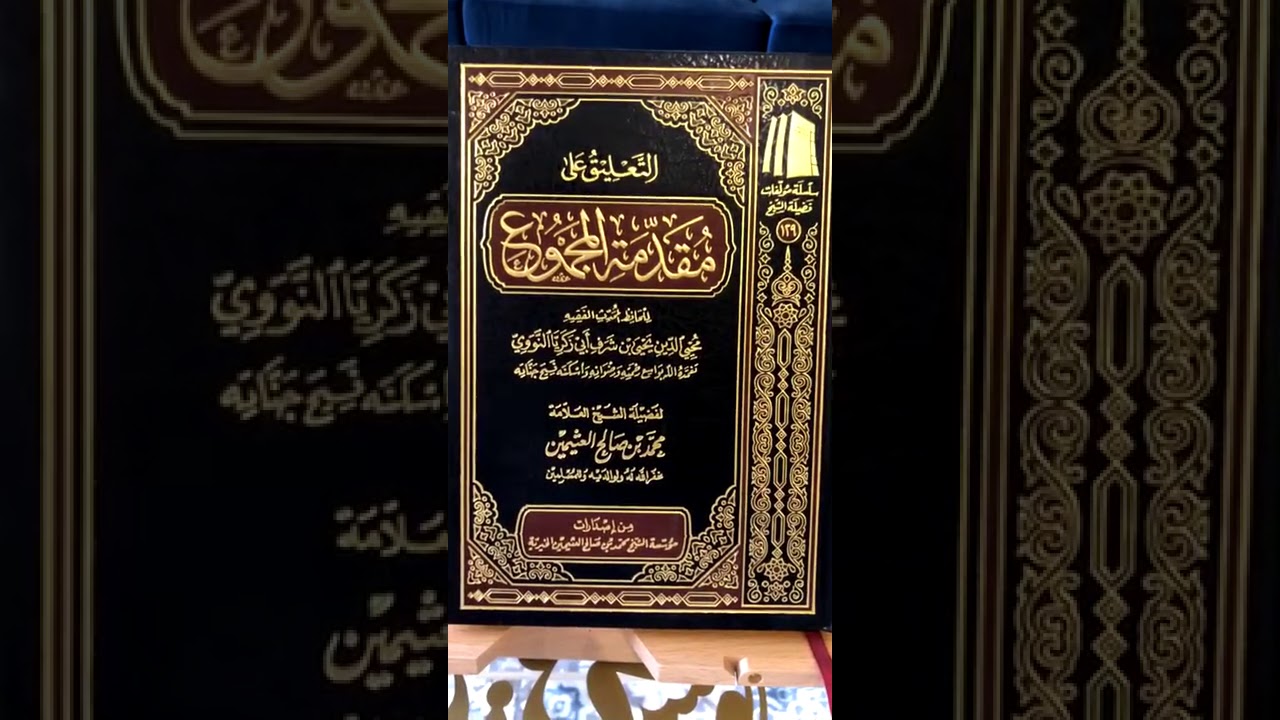 التَّعْلِيْقُ عَلَى
مُقَدِّمَةِ الْمَجْمُوْعِ
لِلْحَافِظِ الْمُحَدِّثِ الفَقِيهِ
مُحْيِي الدِّينِ يَحْيَى بْنِ شَرَفٍ أَبِي زَكَرِيَّا النَّوَوِيِّ
تغمَّده الله بواسع رحمته ورضوانه وأسكنه فسيح جنانه
لفضيلة الشيخ العلّامة
محمّد بن صالح العثيمين
غفر الله له ولوالديه وللمسلمين
من إصدارات
مؤسسة الشيخ محمد بن صالح العثيمين الخيرية
سلسلة مؤلفات
فضيلة الشيخ
١٢٩